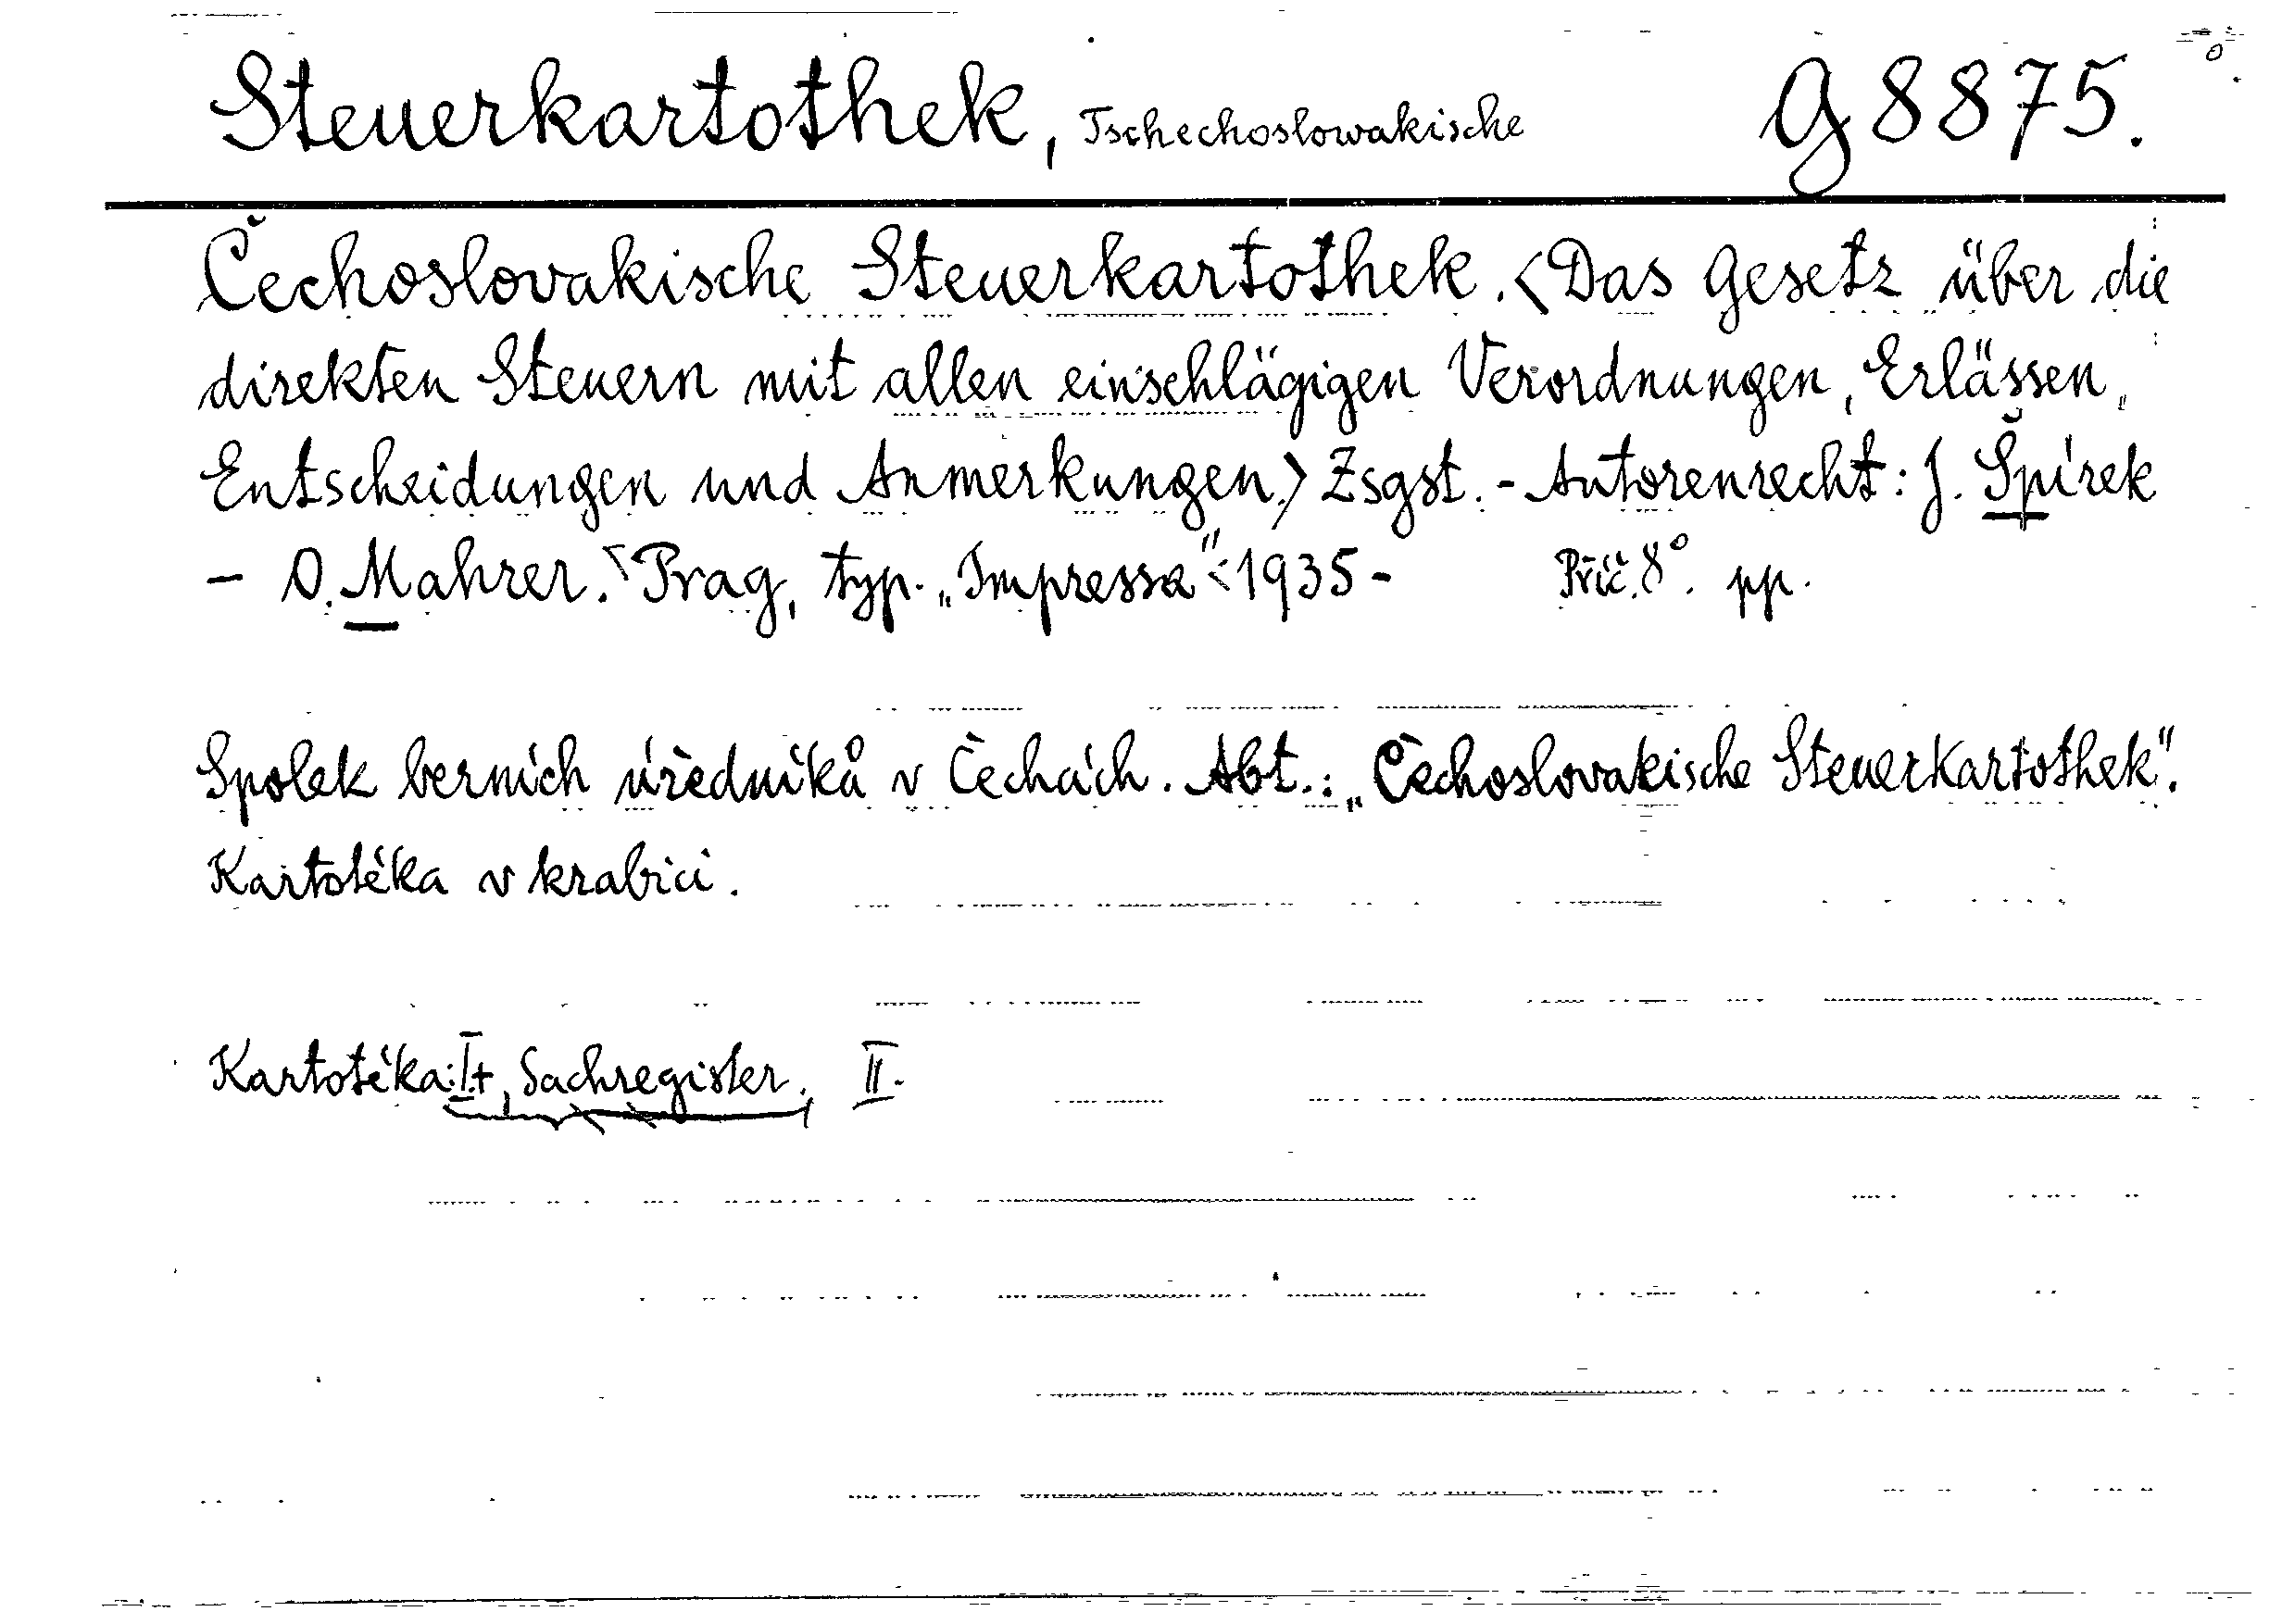 Steuerkartothek, Tschechoslowakische G 8875.
Čechoslovakische Steuerkartothek. <Das Gesetz über die
direkten Steuern mit allen einschlägigen Verordnungen, Erlässen,
Entscheidungen und Anmerkungen.> Zsgst. - Autorenrecht: J. Špírek
- O. Mahrer. <Prag, typ. „Impressa“ < 1935 - Příč. 8°. pp.
Spolek berních úředníků v Čechách. Abt.: „Čechoslovakische Steuerkartothek".
Kartotéka v krabici.
Kartotéka: I. + Sachregister. II.